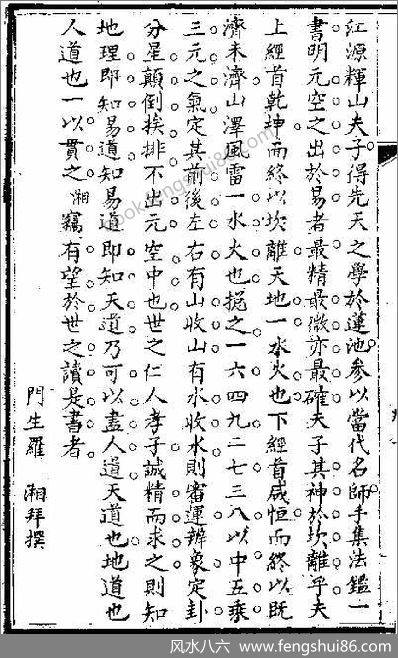 江源輝山夫子得先天之學於蓮池參以當代名師手集法鑑一
書明元空之出於易者最精最微亦最確夫子其神於坎離乎夫
上經首乾坤而終以坎離天地一水火也下經首咸恒而終以既
濟未濟山澤風雷一水火也挹之一六四九二七三八以中五乘
三元之氣定其前後左右有山收山有水收水則審運辨象定卦
分星顛倒挨排不出元空中也世之仁人孝子誠精而求之則知
地理即知易道知易道即知天道乃可以盡人道天道也地道也
人道也一以貫之湘竊有望於世之讀是書者
門生羅湘拜撰
风水八六 www.fengshui86.com